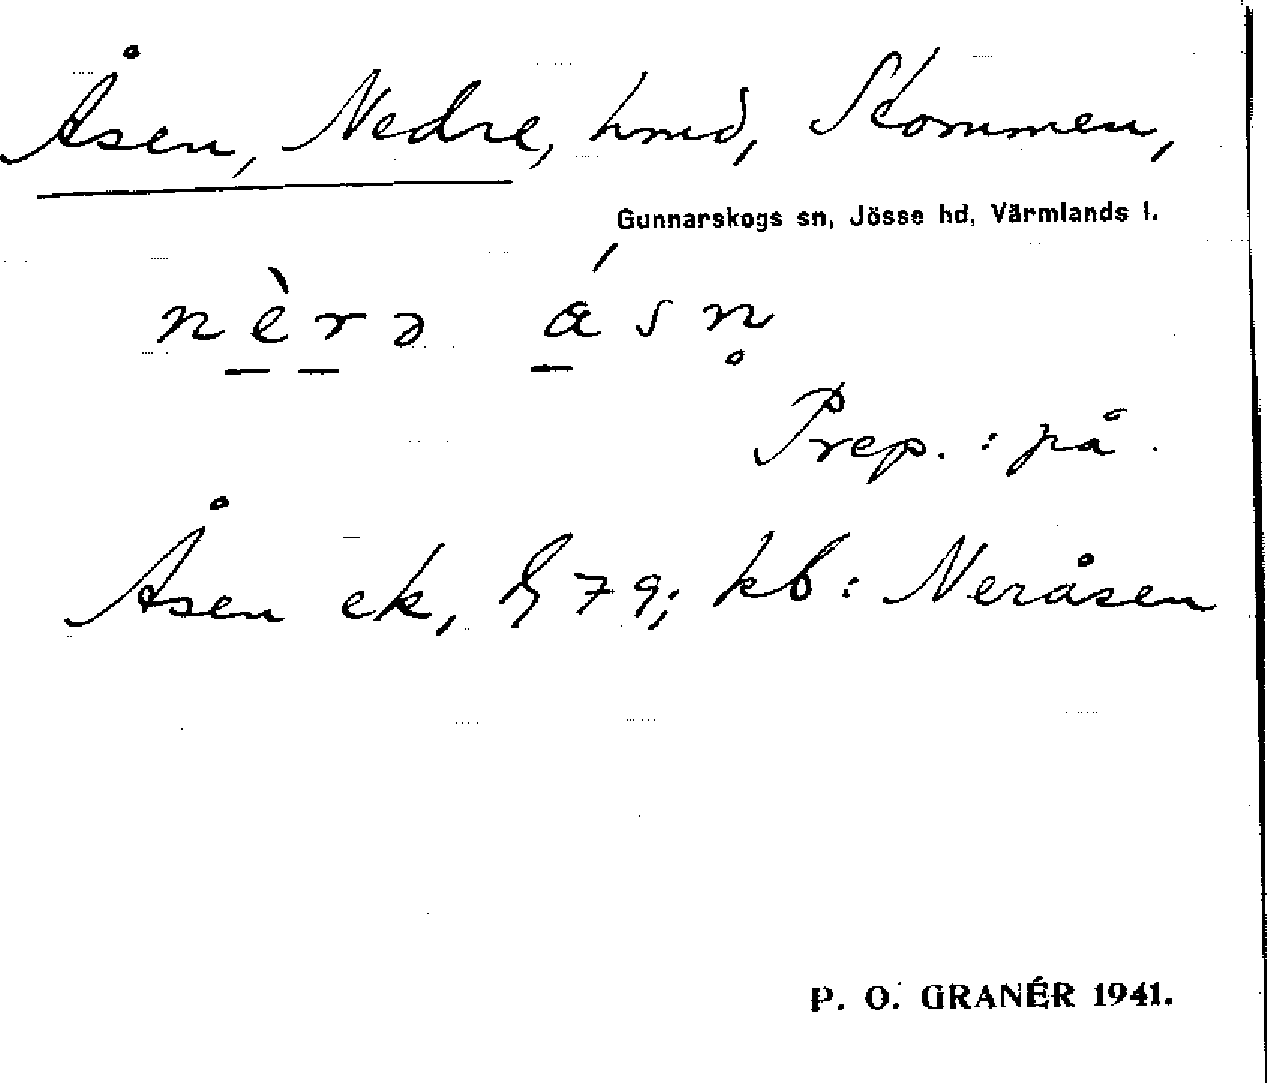 Åsen, Nedre, hmd, Stommen,
Gunnarskogs sn, Jösse hd, Värmlands l.
nèrə ásn̥
Prep. : på.
Åsen ek, 79; kb: Neråsen
P. O. GRANÉR 1941.